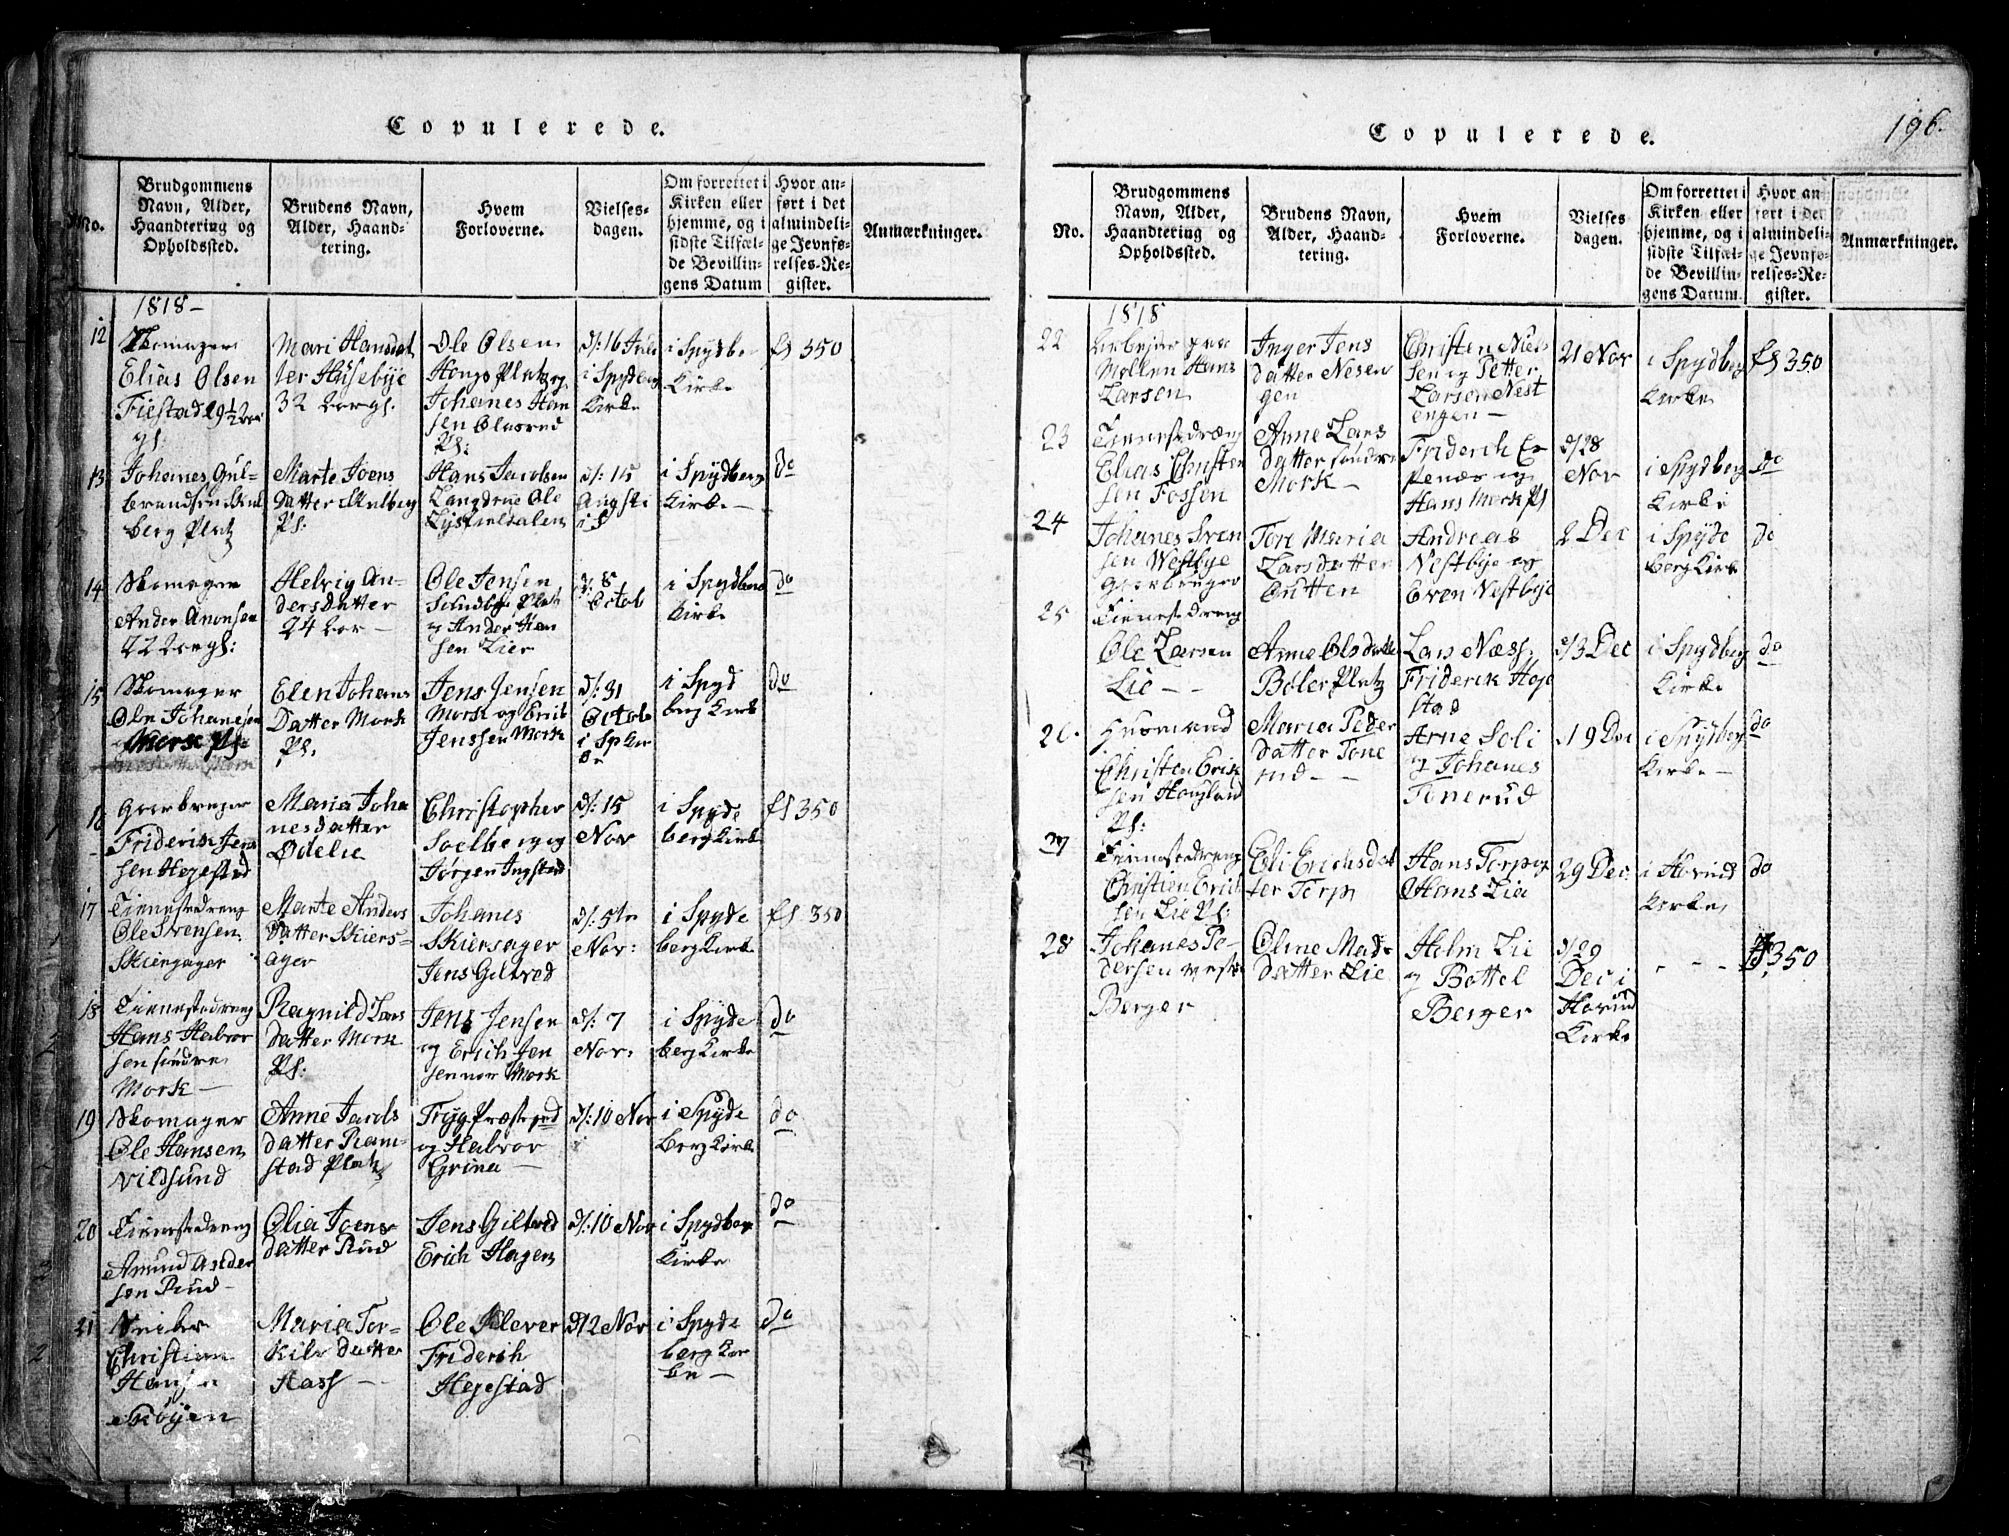 Copulerede.
No.
Brudgommens Navn, Alder, Haandtering og Opholdssted.
Brudens Navn, Alder, Haandtering.
Hvem Forloverne.
Vielsesdagen.
Om forrettet i Kirken eller hjemme, og i sidste Tilfælde Bevillingens Datum
Hvor anført i det almindelige Jevnførelses-Register.
Anmærkninger.
1818-
12
Skomager
Elias Olsen
Fiestad 29½
Mari Hansdat
ter Husebye
32
Ole Olsen
Houg Platz og
Johanes Han
sen Olasrud
Ps:
d: 16 Juli
i Spydeberg
Kirke
i Spydbe
Kirke
fS 350
13
Johanes Gul-
brandsen Skul
berg Platz
Marte Joens
Datter Skulberg
Ps:
Hans Jacobsen
Langdrug Ole
d: 15
Augsti
i S
i Spydberg
Kirke -
do
14
Skomager
Ander Amonsen
22
Helvig An-
dersDatter
24
Ole Jensen
Solndby Platz
og Ander Han
sen Lier
d: 8
Octob
i Spydberg
Kirke
do
15
Skomager
Ole Johanesen
Mork Ps:
Elen Johans
Datter Mork
Ps.
Jens Jensen
Mork og Erik
Jenssen Mork
d: 31
Octob
i Spd
i Spyd
berg Kirk
do
16
Friderik Jen
sen Hegestad
Maria Joha
nesdatter
Ødelie
Christopher
Soelberg og
Jørgen Ingstad
d: 15
Nov
i Spyde
berg Kirke
fS 350
17
Tienestedreng
Ole Svensen
Skiersager
Marte Anders
Datter Skiers-
ager
Johanes
Skiersager
Jens Giltved
d: 5te
Nov:
i Spyde
berg Kirke
fS. 350
18
Tienestedreng
Hans Halvor
sen søndre
Mork -
Ragnild Lars
datter Mork
Ps:
Jens Jensen
og Erich Jen
sen nor Mork
d: 7
Nov:
i Spyde
berg Kirke
do
19
Skomager
Ole Hansen
Vildsund
Anne Jacobs
datter Ram-
stad Platz
Tryg Præsterud
og Halvor
Grina -
d: 10 Nov
i Spyde
berg Kirke
do
20
Tienestedreng
Amund
sen Rud -
Olia Joens
datter Rud
Jens Giltved
Erich Hagen
d: 10 Nov
i Spydberg
Kirke
do
21
Christian
Hansen
Skøyen
Maria Tor-
kilsdatter
Hass -
Ole Klever
Friderik
Hegestad
d12 Nov
i Spyde
berg Kir
ke -
do
Copulerede.
196.
No.
Brudgommens Navn, Alder, Haandtering og Opholdssted.
Brudens Navn, Alder, Haandtering.
Hvem Forloverne.
Vielsesdagen.
Om forrettet i Kirken eller hjemme, og i sidste Tilfælde Bevillingens Datum.
Hvor anført i det almindelige Jevnførelses-Register.
Anmærkninger.
1818
22
Arbejder paa
Møllen Hans
Larsen
Inger Jens
datter Nesen
gen
Christen Niel
sen og Petter
Larsen Nest
engen -
21 Nov
i Spydberg
Kirke
fS 350
23
Tienestedreng
Elias Christen
sen Fossen
Anne Lars
datter søndre
Mork -
Friderik Es
penæs og
Hans Mork Ps
d/28
Nov
i Spydberg
Kirke
do
24
Johanes Sven
sen Westbye
Gaardbruger
Tore Maria
Larsdatter
Butten
Andreas
Westbye og
Even Vestbye
2 Dec
i Spyde
berg Kirk
do
25
Tienestedreng
Ole Larsen
Lie - -
Anne Olsdatter
Boler Platz
Lars Næss,
Friderik Hege
stad
d/3 Dec
i Spydberg
Kirke
do
26.
Huusmand
Christen Erik
sen Hougland
Ps:
Maria Peder
datter Tone
rud - -
Arne Soli
og Johanes
Tonerud
d 19 Dec
i Spydberg
Kirke -
do
27
Tienestedreng
Christien Erich
sen Lie Ps:
Eli Erichsdat
ter Torp
Hans Torp og
Hans Lia
29 Dec.
i Hovind
Kirke
do
28
Johanes Pe-
dersen vestre
Berger
Oline Mads
datter Lie
Holm Lie
og Bottel
Berger
d/29
Dec i
Hovind
Kirke
- - -
fS 350